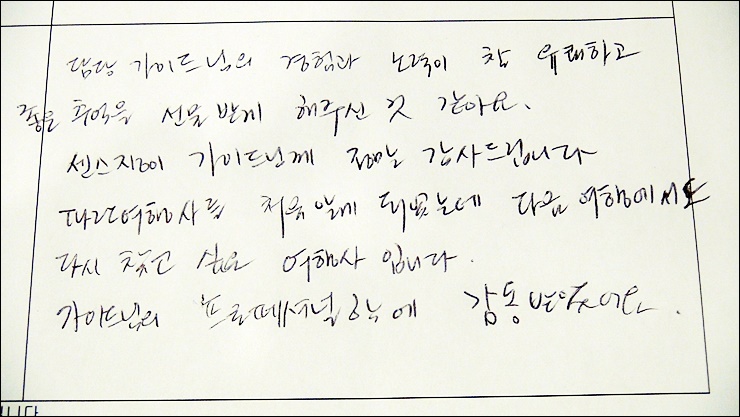 담당 가이드님의 경험과 노력이 참 유쾌하고
좋은 추억을 선물받게 해주신 것 같아요.
센스쟁이 가이드님께 정말 감사드립니다
처음 알게 되었는데 다음 여행에서도
다시 찾고 싶은 여행사 입니다.
가이드님의 프로페셔널함에 감동받았어요.
니다